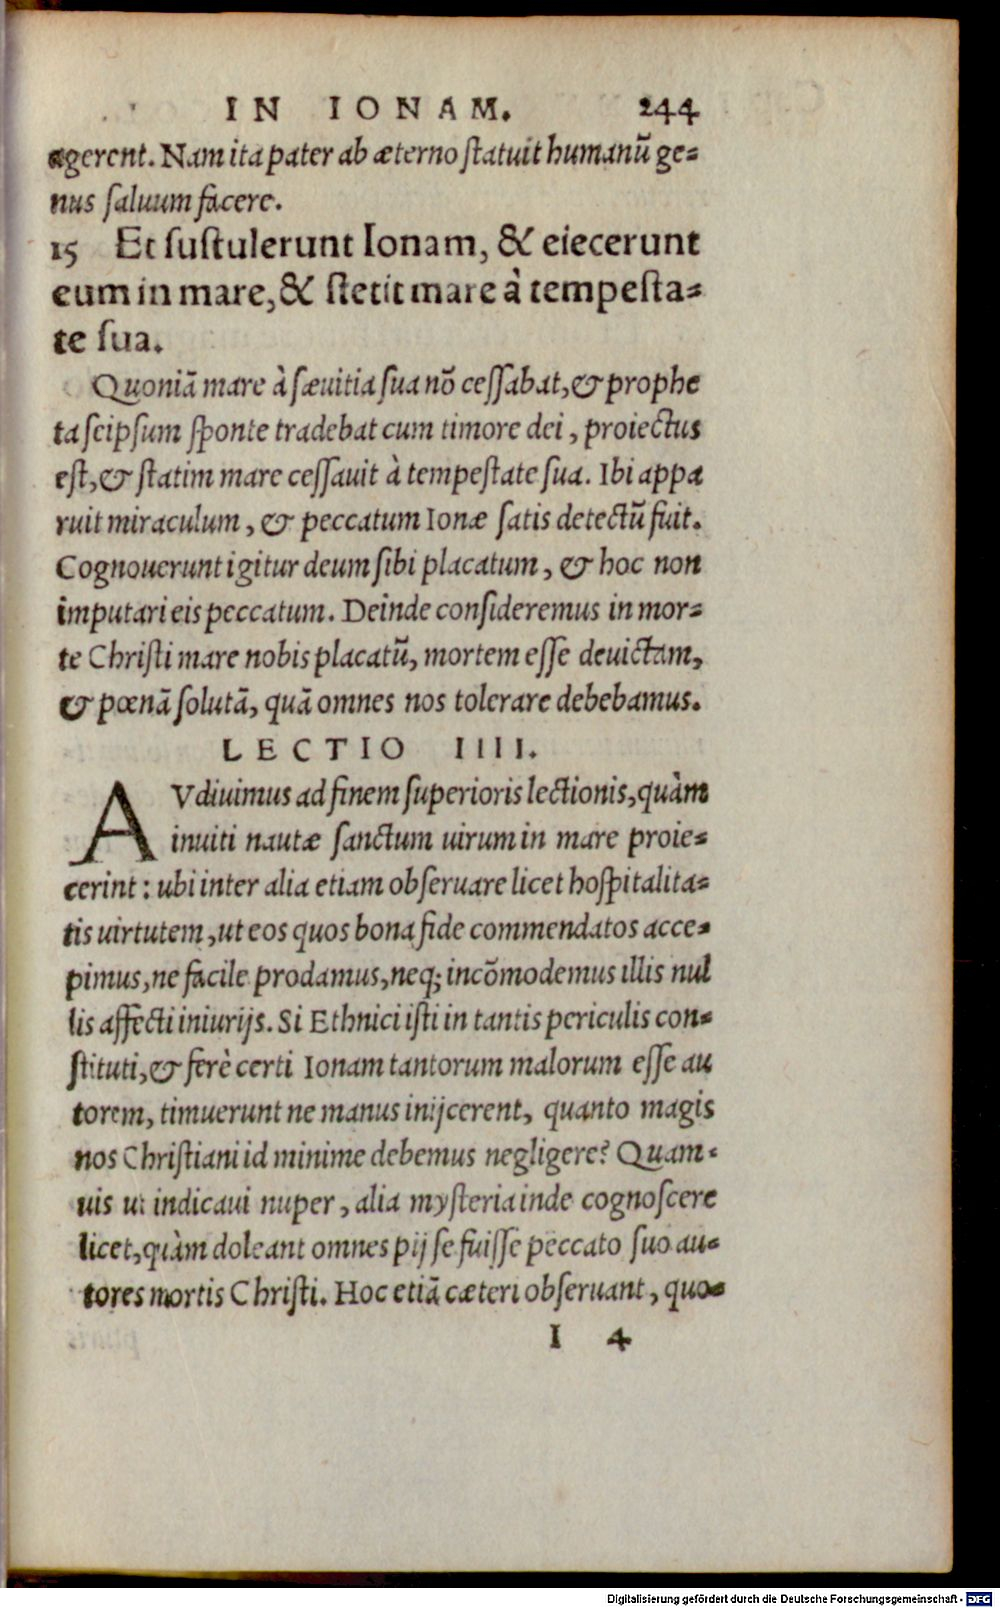 IN IONAM. 244
agerent. Nam ita pater ab æterno ſtatuit humanũ ge-
nus ſaluum facere.
15 Et ſuſtulerunt Ionam, & eiecerunt
eum in mare, & ſtetit mare à tempeſta-
te ſua.
Quoniã mare à ſæuitia ſua nõ ceſſabat, & prophe
ta ſeipſum ſponte tradebat cum timore dei, proiectus
eſt, & ſtatim mare ceſſauit à tempeſtate ſua. Ibi appa
ruit miraculum, & peccatum Ionæ ſatis detectũ fuit.
Cognouerunt igitur deum ſibi placatum, & hoc non
imputari eis peccatum. Deinde conſideremus in mor-
te Chriſti mare nobis placatũ, mortem eſſe deuictam,
& pœnã ſolutã, quã omnes nos tolerare debebamus.
LECTIO IIII.
AVdiuimus ad finem ſuperioris lectionis, quàm
inuiti nautæ ſanctum uirum in mare proie-
cerint: ubi inter alia etiam obſeruare licet hoſpitalita-
tis uirtutem, ut eos quos bona fide commendatos acce-
pimus, ne facile prodamus, neq; incõmodemus illis nul
lis affecti iniurijs. Si Ethnici iſti in tantis periculis con-
ſtituti, & ferè certi Ionam tantorum malorum eſſe au
torem, timuerunt ne manus inijcerent, quanto magis
nos Chriſtiani id minime debemus negligere? Quam-
uis ut indicaui nuper, alia myſteria inde cognoſcere
licet, quàm doleant omnes pij ſe fuiſſe peccato ſuo au-
tores mortis Chriſti. Hoc etiã cæteri obſeruant, quo-
I 4
Digitalisierung gefördert durch die Deutsche Forschungsgemeinschaft - DFG